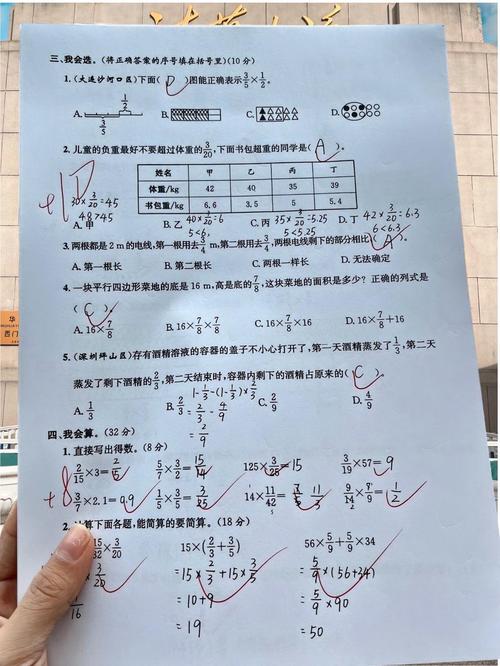 三、我会选。(将正确答案的序号填在括号里)(10分)
1.(大连沙河口区)下面( D )图能正确表示3/5×1/2。
A. 1/2 3/5 B. C. D.
2.儿童的负重最好不要超过体重的3/20,下面书包超重的同学是( A )。
姓名 甲 乙 丙 丁
体重/kg 42 40 35 39
书包重/kg 6.6 3.5 5 5.4
+10
A.甲 B.乙 40×3/20=6 C.丙 35×3/20=5.25 D.丁 42×3/20=6.3
5<6 5<5.25 6<6.3
3.两根都是2 m的电线,第一根用去3/4 m,第二根用去3/4,两根电线剩下的部分相比( A )。
A.第一根长 B.第二根长 C.两根一样长 D.无法确定
4.一块平行四边形菜地的底是16 m,高是底的7/8,这块菜地的面积是多少? 正确的列式是
( C )
A.16×7/8 B.16×7/8×7/8 C.16×7/8×16 D.16×7/8+16
5.(深圳坪山区)存有酒精溶液的容器的盖子不小心打开了,第一天酒精蒸发了1/3,第二天
蒸发了剩下酒精的2/3,第二天结束时,容器内剩下的酒精占原来的( C )。
1-1/3-(1-1/3)×2/3
A.1/3 B.2/3 C.2/9 D.4/9
=2/3-4/9
=2/9
四、我会算。(32分)
1.直接写出得数。(8分)
+8
2/15×3=2/5 5/7×3/2=15/14 125×3/25=15 3/19×57=9
3/7×2.1=0.9 1/5×3/5=3/25 14×11/42=11/3 9/14×7/9=1/2
2.计算下面各题,能简算的要简算。(18分)
15/32×3/20 15×(2/3+3/5) 56×5/9+5/9×34
=15×2/3+15×3/5 =5/9×(56+34)
=10+9 =5/9×90
=19 =50